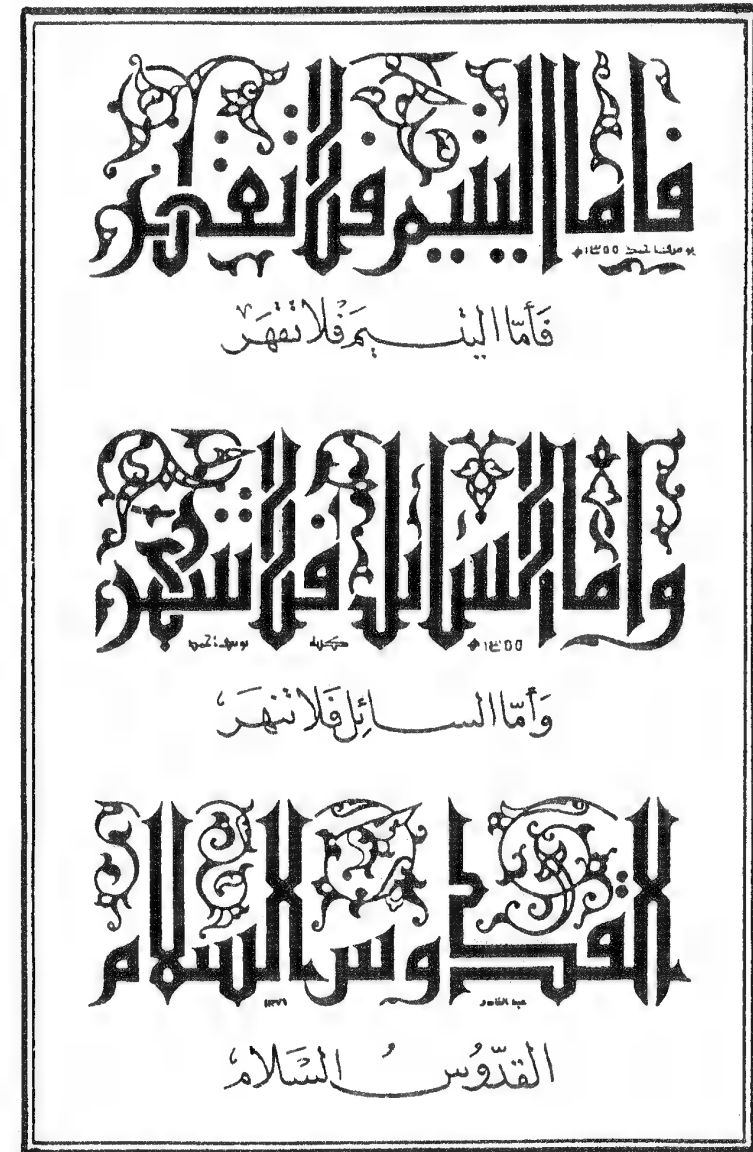 فاما اليتيم فلا تقهر
يوسف احمد ١٣٥٥ هـ
فَأَمّا اليتيمَ فَلا تقهَر
واما السائل فلا تنهر
١٣٥٥ هـ يوسف احمد
وَأَمّا السائِل فَلا تنهَر
القدوس السلام
عبد القادر ١٣٧٦
القدّوسُ السَّلام